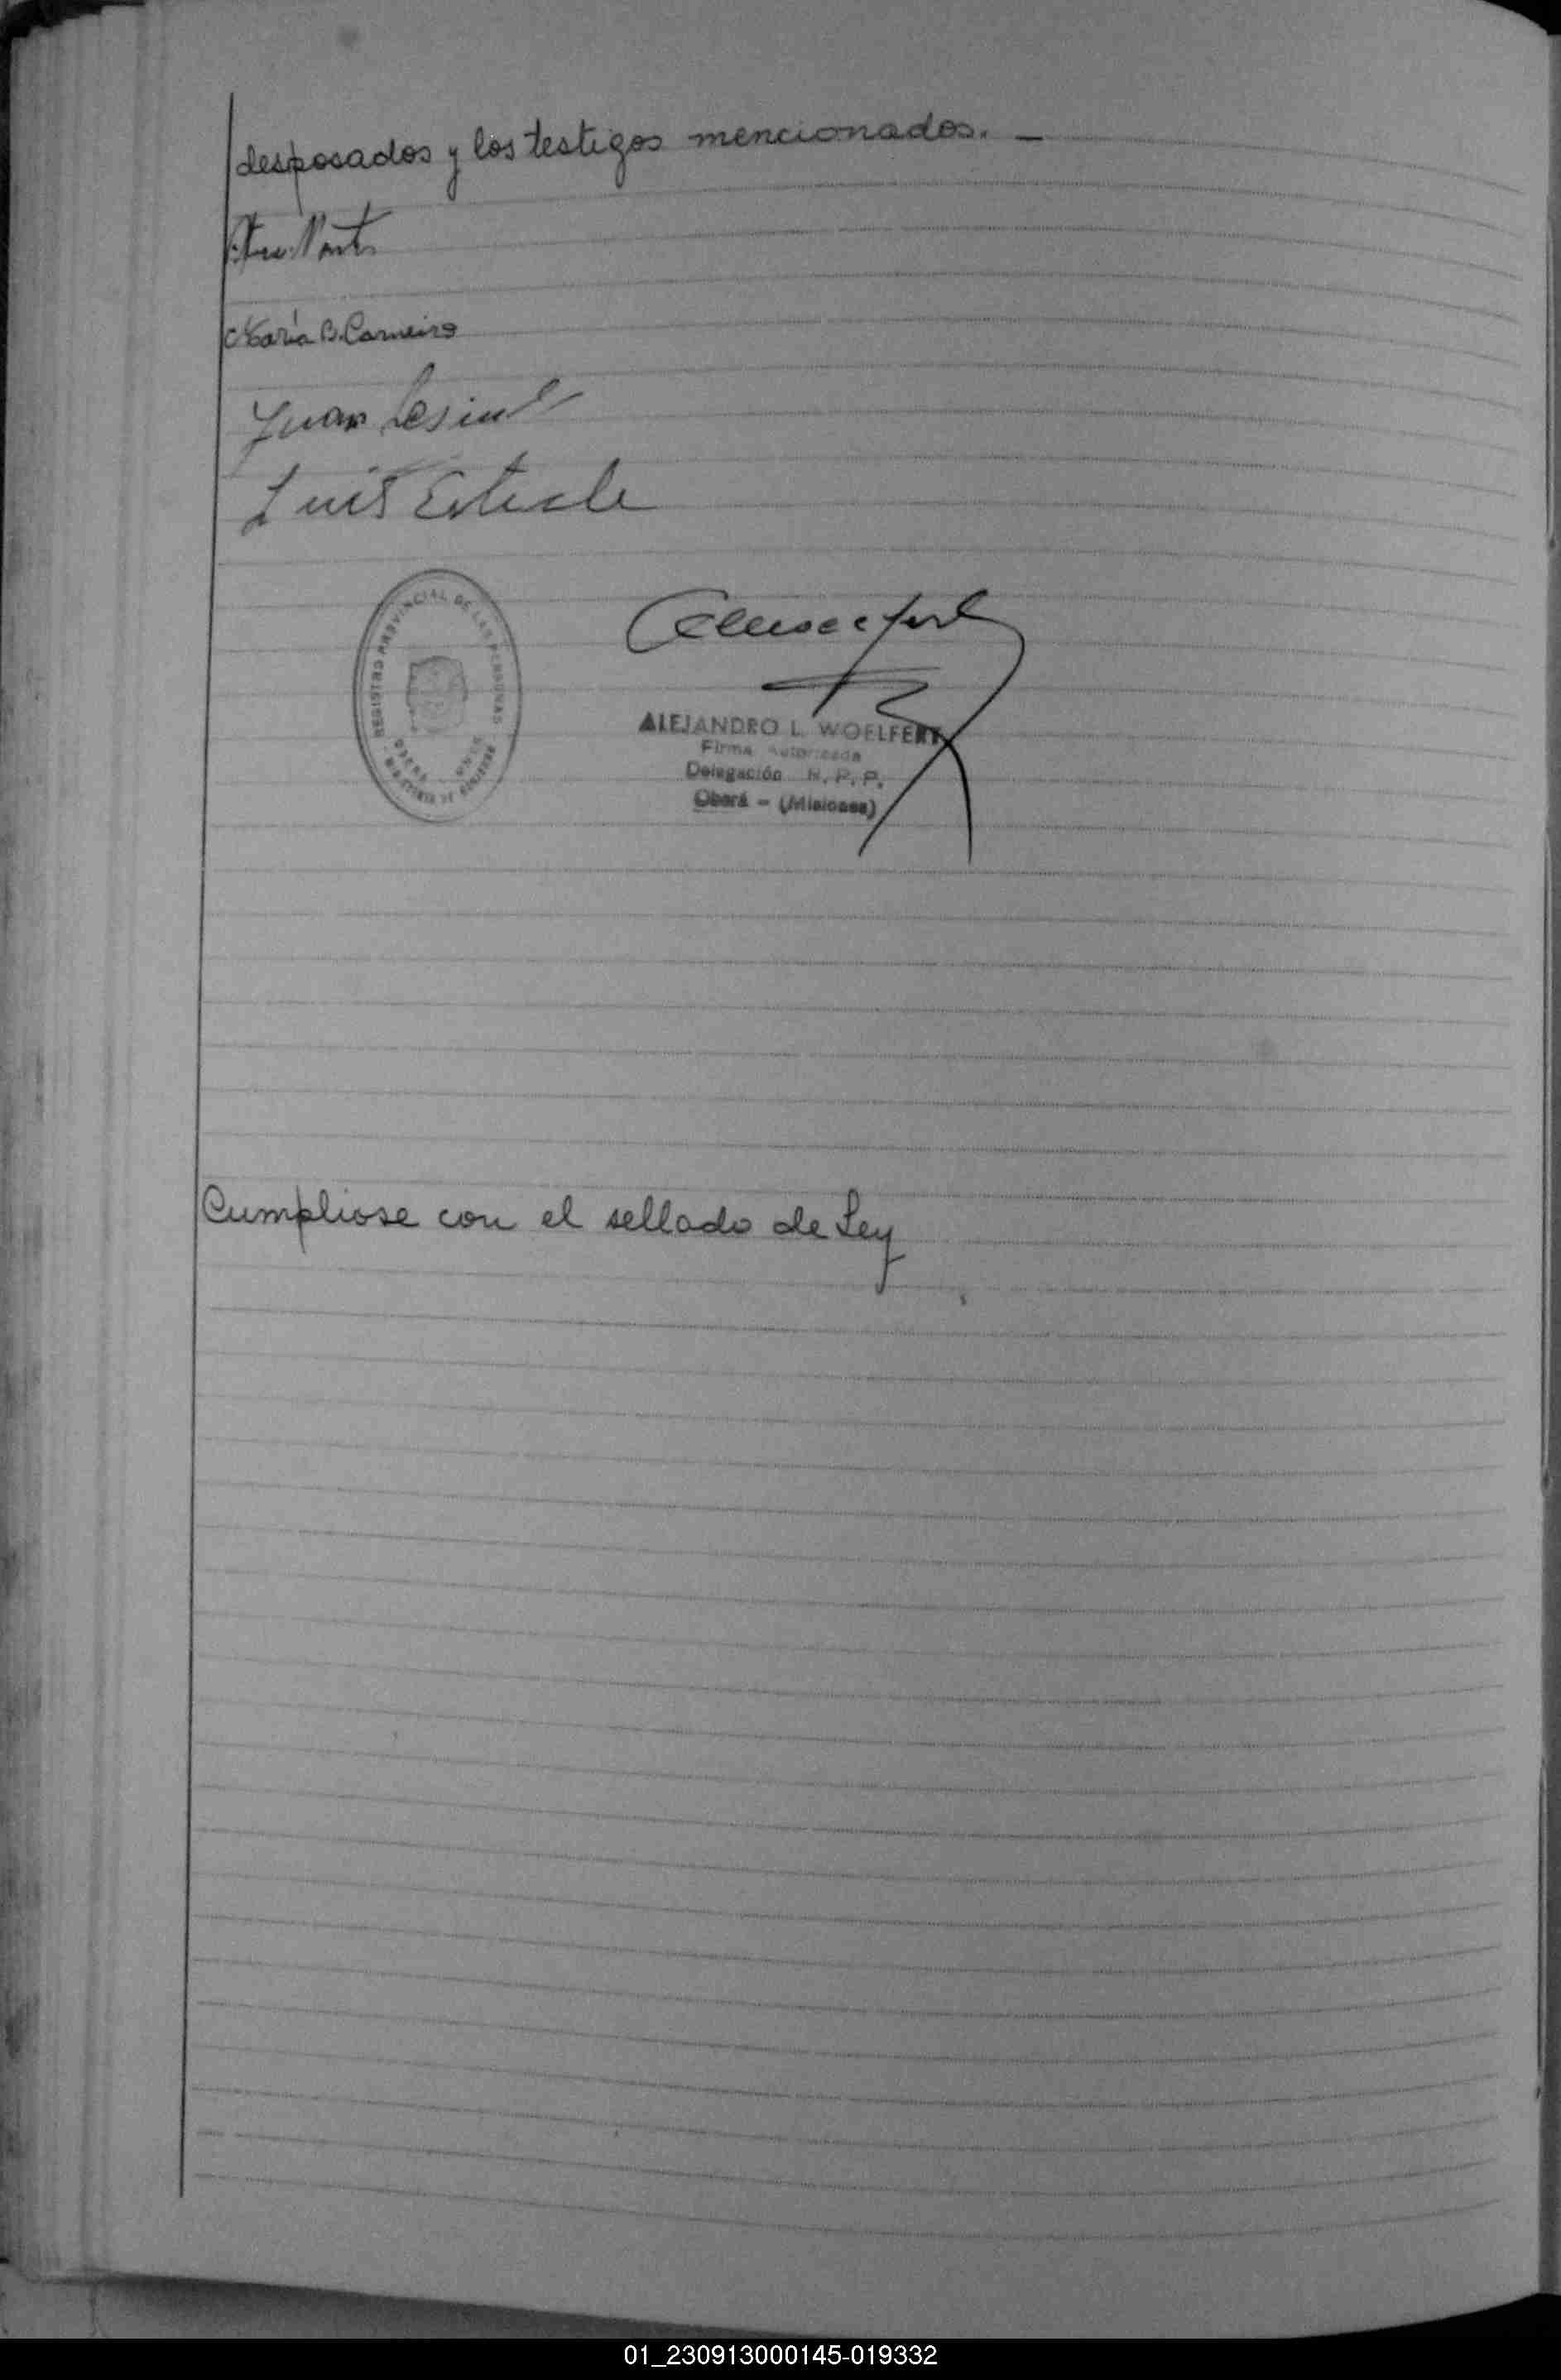 desposados y los testigos mencionados. —
María B. Carneiro
Juan
Luis
REGISTRO PROVINCIAL DE LAS PERSONAS
ALEJANDRO L. WOELFERT
Firma Autorizada
Delegación R. P. P.
Oberá - (Misiones)
Cumpliose con el sellado de Ley
01_230913000145-019332